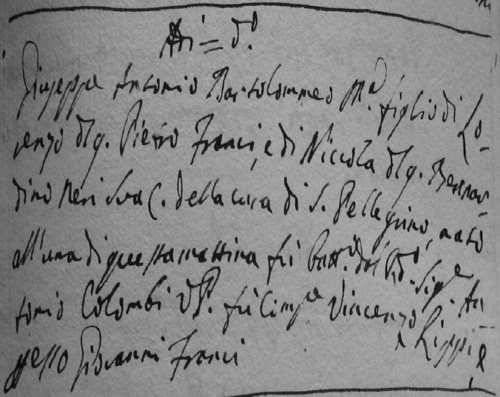 Adi = d.º
Giuseppe Antonio Bartolommeo M.ª figlio di Lo-
renzo dl q. Pietro Franci, e di Niccola dl q. Bernar-
dino Neri sua C. della cura di S. Pellegrino, nato
all'una di questa mattina fù batt.º dal R.º Sig.re An-
tonio Colombi fù Comp.e Vincenzo Lippi, e
p esso Giovanni Franci